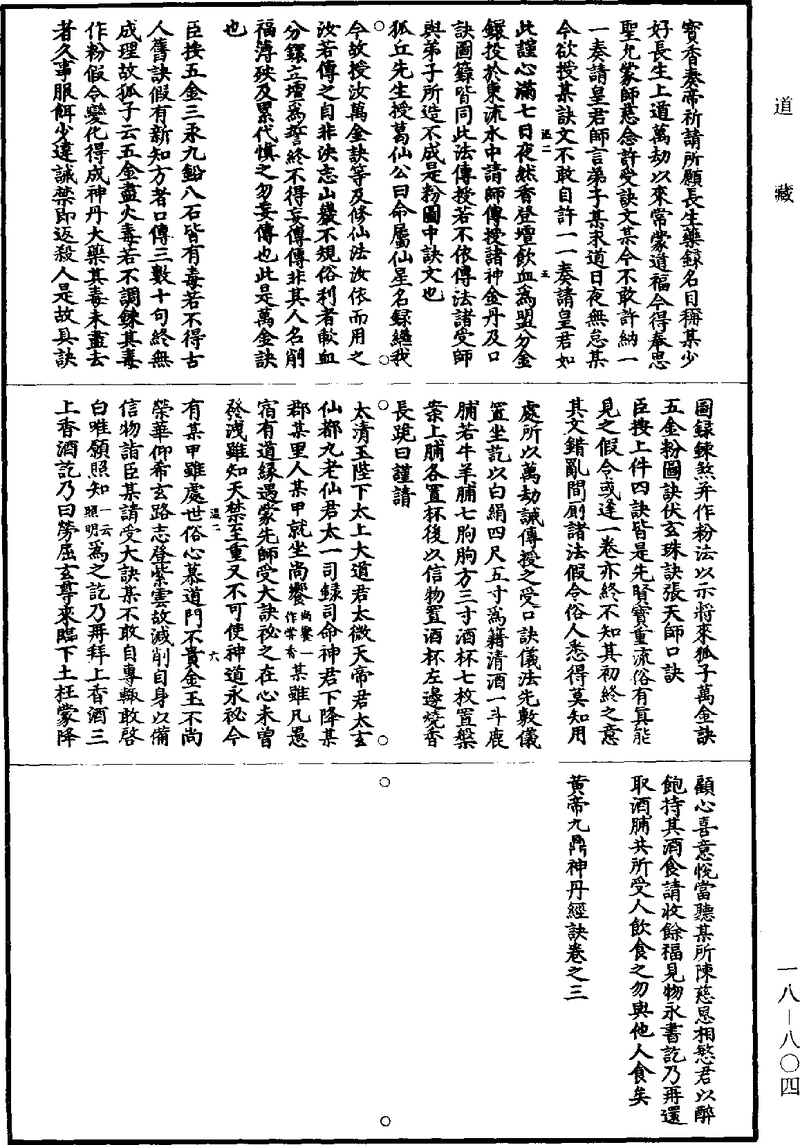 道藏
寶香奏帝祈請所願長生藥録名目稱某少
好長生上道萬劫以來常蒙道福今得奉忠
聖允蒙師慈念許受訣文某今不敢許納一
一奏請皇君師言弟子某求道日夜無怠某
今欲授某訣文不敢自許一一奏請皇君如
此謹心滿七日夜然香登壇飲血爲盟分金
鐶投於東流水中請師傳授諸神金丹及口
訣圖籙皆同此法傳授若不依傳法諸受師
與弟子所造不成是粉圖中訣文也
狐丘先生授葛仙公曰命屬仙星名録繼我
今故授汝萬金訣等及修仙法汝依而用之
汝若傳之自非決志山巖不規俗利者歃血
分鐶立壇爲誓終不得妄傳傳非其人名削
福薄殃及累代慎之勿妄傳也此是萬金訣
也
臣按五金三汞九鉛八石皆有毒若不得古
人舊訣假有新知方者口傳三數十句終無
成理故狐子云五金盡火毒若不調鍊其毒
作粉假令變化得成神丹大藥其毒未盡去
者久事服餌少違誡禁即返殺人是故具訣
圖録鍊煞并作粉法以示將來狐子萬金訣
五金粉圖訣伏玄珠訣張天師口訣
臣按上件四訣皆是先賢寶重流俗有真能
見之假令或逢一卷亦終不知其初終之意
其文錯亂間厠諸法假令俗人悉得莫知用
處所以萬劫誡傳授之受口訣儀法先敷儀
置坐訖以白絹四尺五寸爲籍清酒一斗鹿
脯若牛羊脯七朐朐方三寸酒杯七枚置槃
案上脯各置杯後以信物置酒杯左邊燒香
長跪曰謹請
太清玉陛下太上大道君太微天帝君太玄
仙都九老仙君太一司録司命神君下降某
郡某里人某甲就坐尚饗尚饗一作常香某雖凡愚
宿有道緣遇蒙先師受大訣祕之在心未曾
發洩雖知天禁至重又不可使神道永祕今
有某甲雖處世俗心慕道門不貴金玉不尚
榮華仰希玄路志登紫雲故減削自身以備
信物詣臣某請受大訣某不敢自專輒敢啓
白唯願照知一云照明爲之訖乃再拜上香酒三
上香酒訖乃曰勞屈玄尊來臨下土枉蒙降
顧心喜意悅當聽某所陳慈恩相愍君以醉
飽持其酒食請收餘福見物永書訖乃再還
取酒脯共所受人飲食之勿與他人食矣
黃帝九鼎神丹經訣卷之三
一八—八〇四